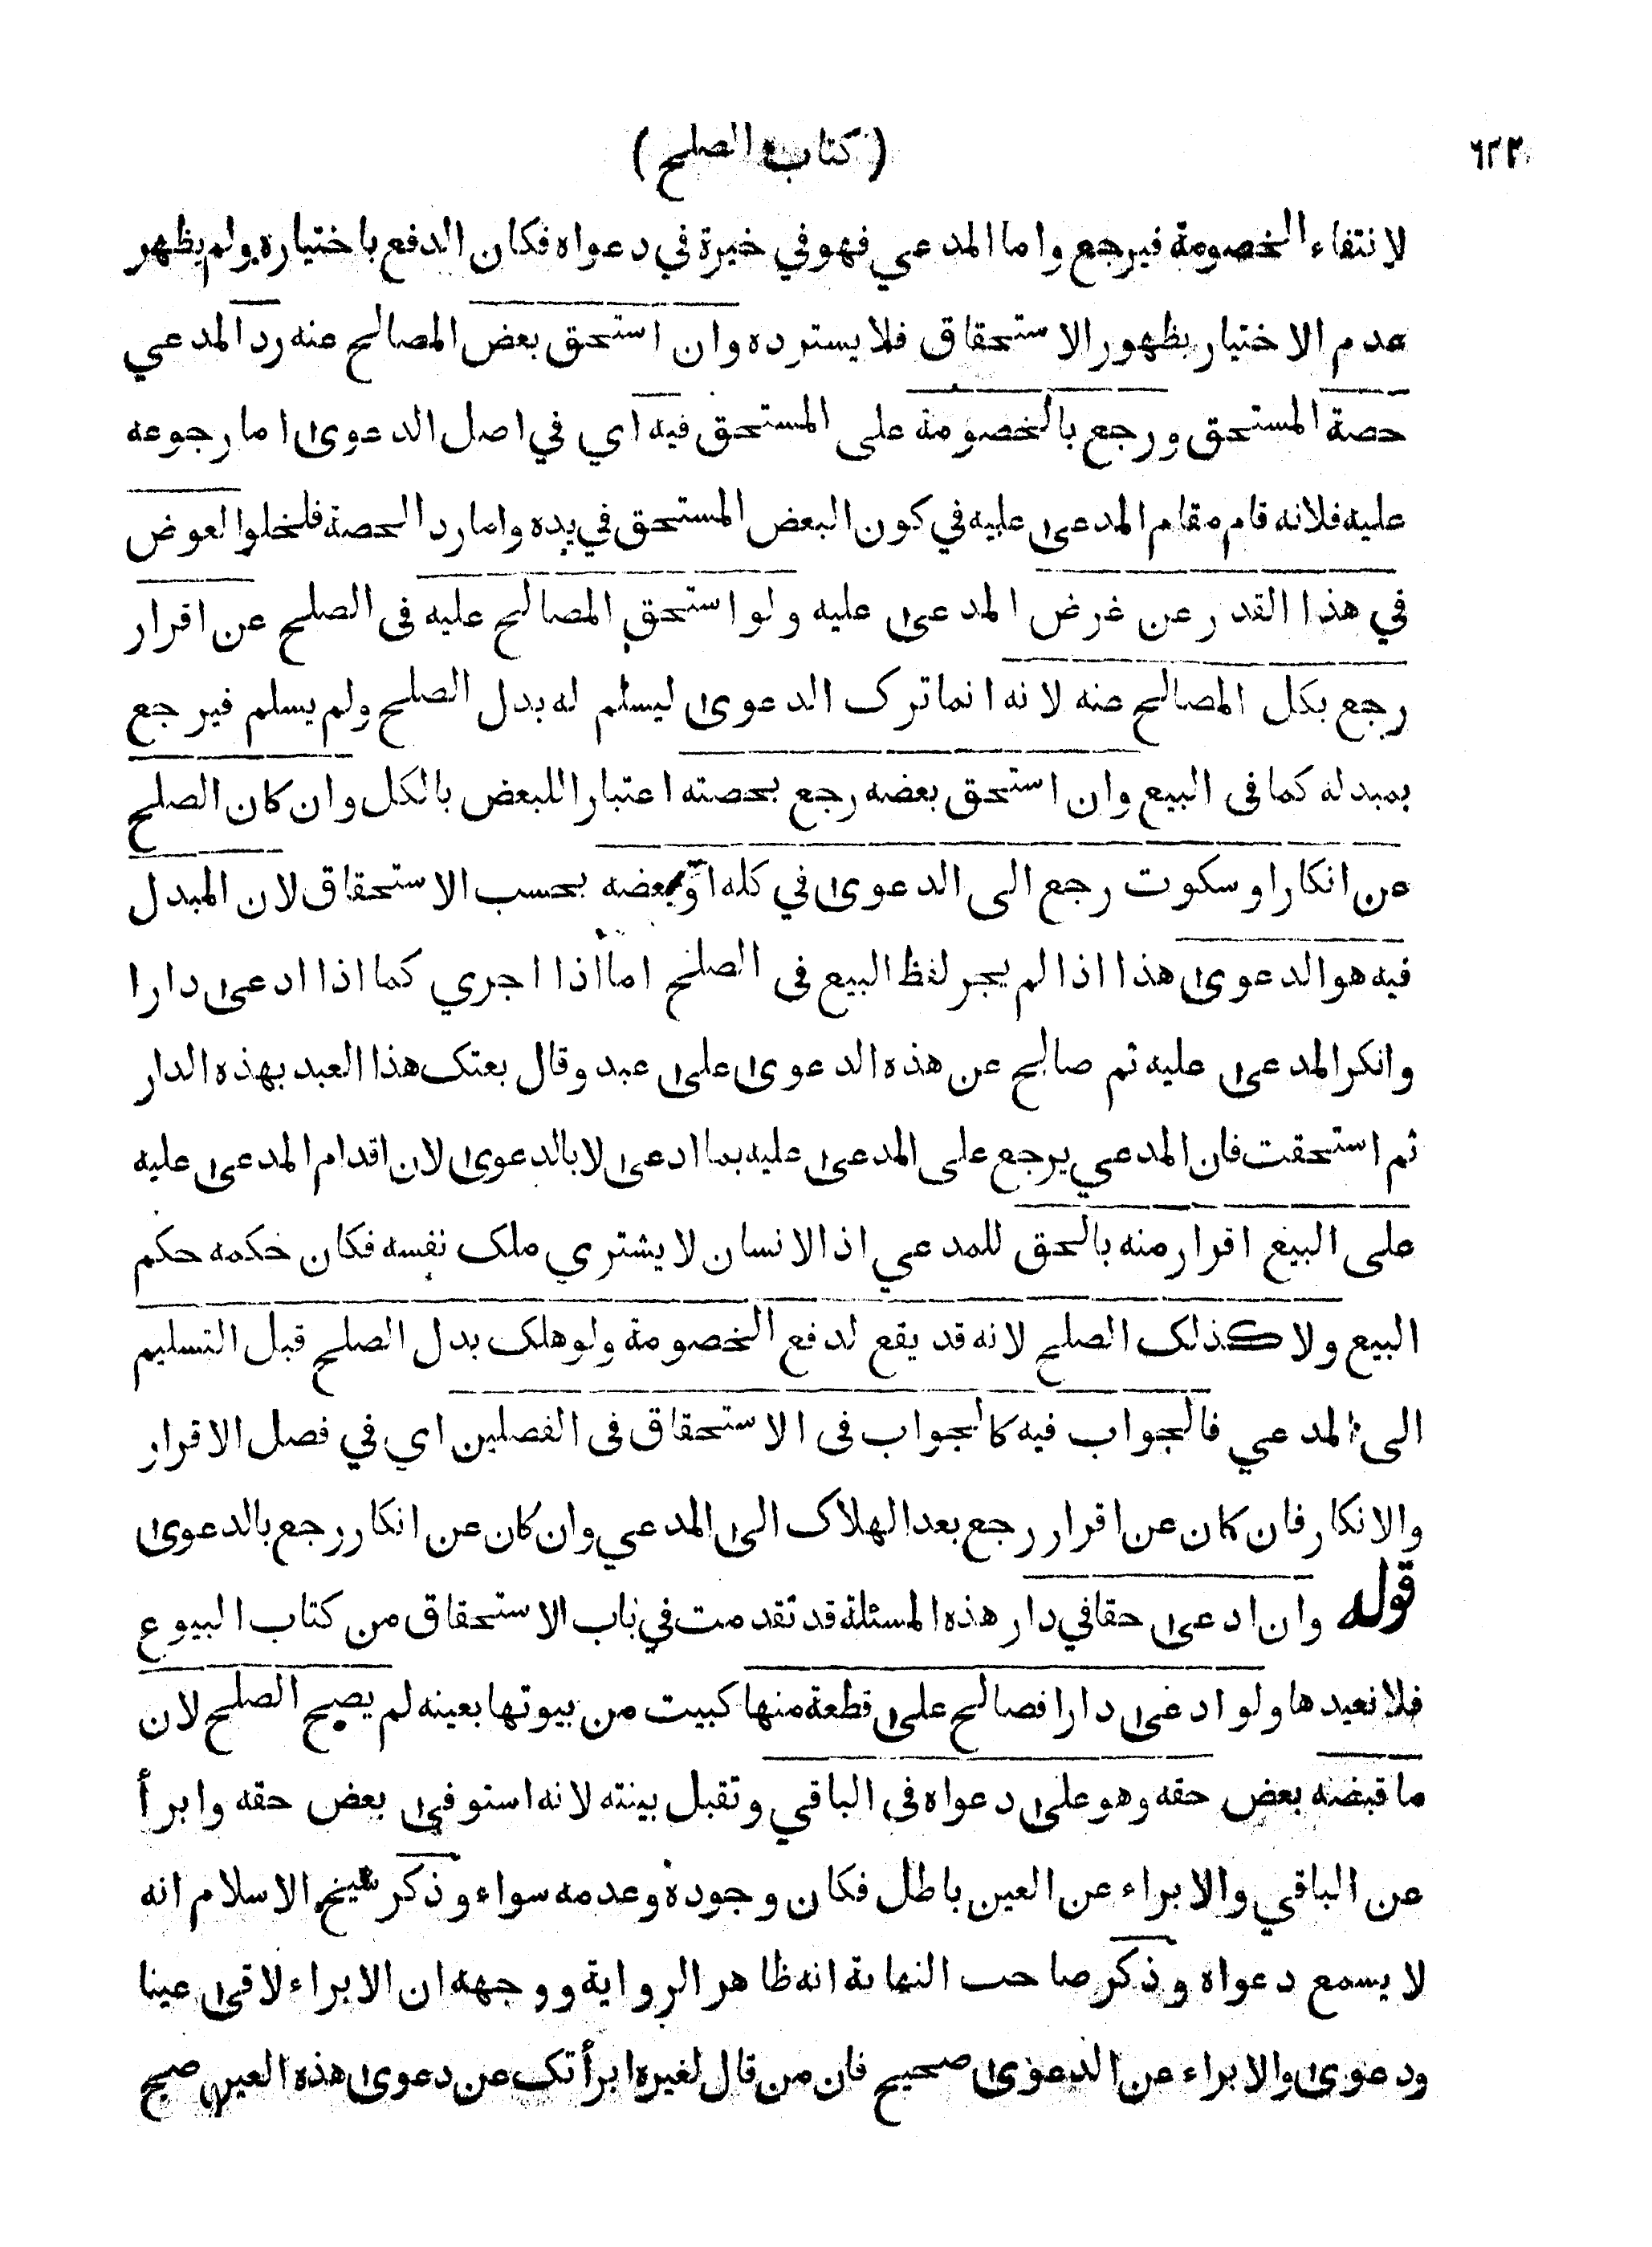 (كتاب الصلح) ٦٢٢
لانتفاء الخصومة فيرجع واما المدعي فهو في خيرة في دعواه فكان الدفع باختياره ولم يظهر
عدم الاختيار بظهور الاستحقاق فلا يسترده وان استحق بعض المصالح عنه رد المدعي
حصة المستحق ورجع بالخصومة على المستحق فيه اي في اصل الدعوى اما رجوعه
عليه فلانه قام مقام المدعى عليه في كون البعض المستحق في يده واما رد الحصة فلخلو العوض
في هذا القدر عن غرض المدعى عليه ولو استحق المصالح عليه في الصلح عن اقرار
رجع بكل المصالح عنه لانه انما ترك الدعوى ليسلم له بدل الصلح ولم يسلم فيرجع
بمبدله كما في البيع وان استحق بعضه رجع بحصته اعتبارا للبعض بالكل وان كان الصلح
عن انكار او سكوت رجع الى الدعوى في كله او بعضه بحسب الاستحقاق لان المبدل
فيه هو الدعوى هذا اذا لم يجر لفظ البيع في الصلح اما اذا اجري كما اذا ادعى دارا
وانكر المدعى عليه ثم صالح عن هذه الدعوى على عبد وقال بعتك هذا العبد بهذه الدار
ثم استحقت فان المدعي يرجع على المدعى عليه بما ادعى لا بالدعوى لان اقدام المدعى عليه
على البيع اقرار منه بالحق للمدعي اذ الانسان لا يشتري ملك نفسه فكان حكمه حكم
البيع ولا كذلك الصلح لانه قد يقع لدفع الخصومة ولو هلك بدل الصلح قبل التسليم
الى المدعي فالجواب فيه كالجواب في الاستحقاق في الفصلين اي في فصل الاقرار
والانكار فان كان عن اقرار رجع بعد الهلاك الى المدعي وان كان عن انكار رجع بالدعوى
قوله وان ادعى حقا في دار هذه المسئلة قد تقدمت في باب الاستحقاق من كتاب البيوع
فلا نعيدها ولو ادعى دارا فصالح على قطعة منها كبيت من بيوتها بعينه لم يصح الصلح لان
ما قبضه بعض حقه وهو على دعواه في الباقي وتقبل بينته لانه استوفى بعض حقه وابرأ
عن الباقي والابراء عن العين باطل فكان وجوده وعدمه سواء وذكر شيخ الاسلام انه
لا يسمع دعواه وذكر صاحب النهاية انه ظاهر الرواية ووجهه ان الابراء لاقى عينا
ودعوى والابراء عن الدعوى صحيح فان من قال لغيره ابرأتك عن دعوى هذه العين صح